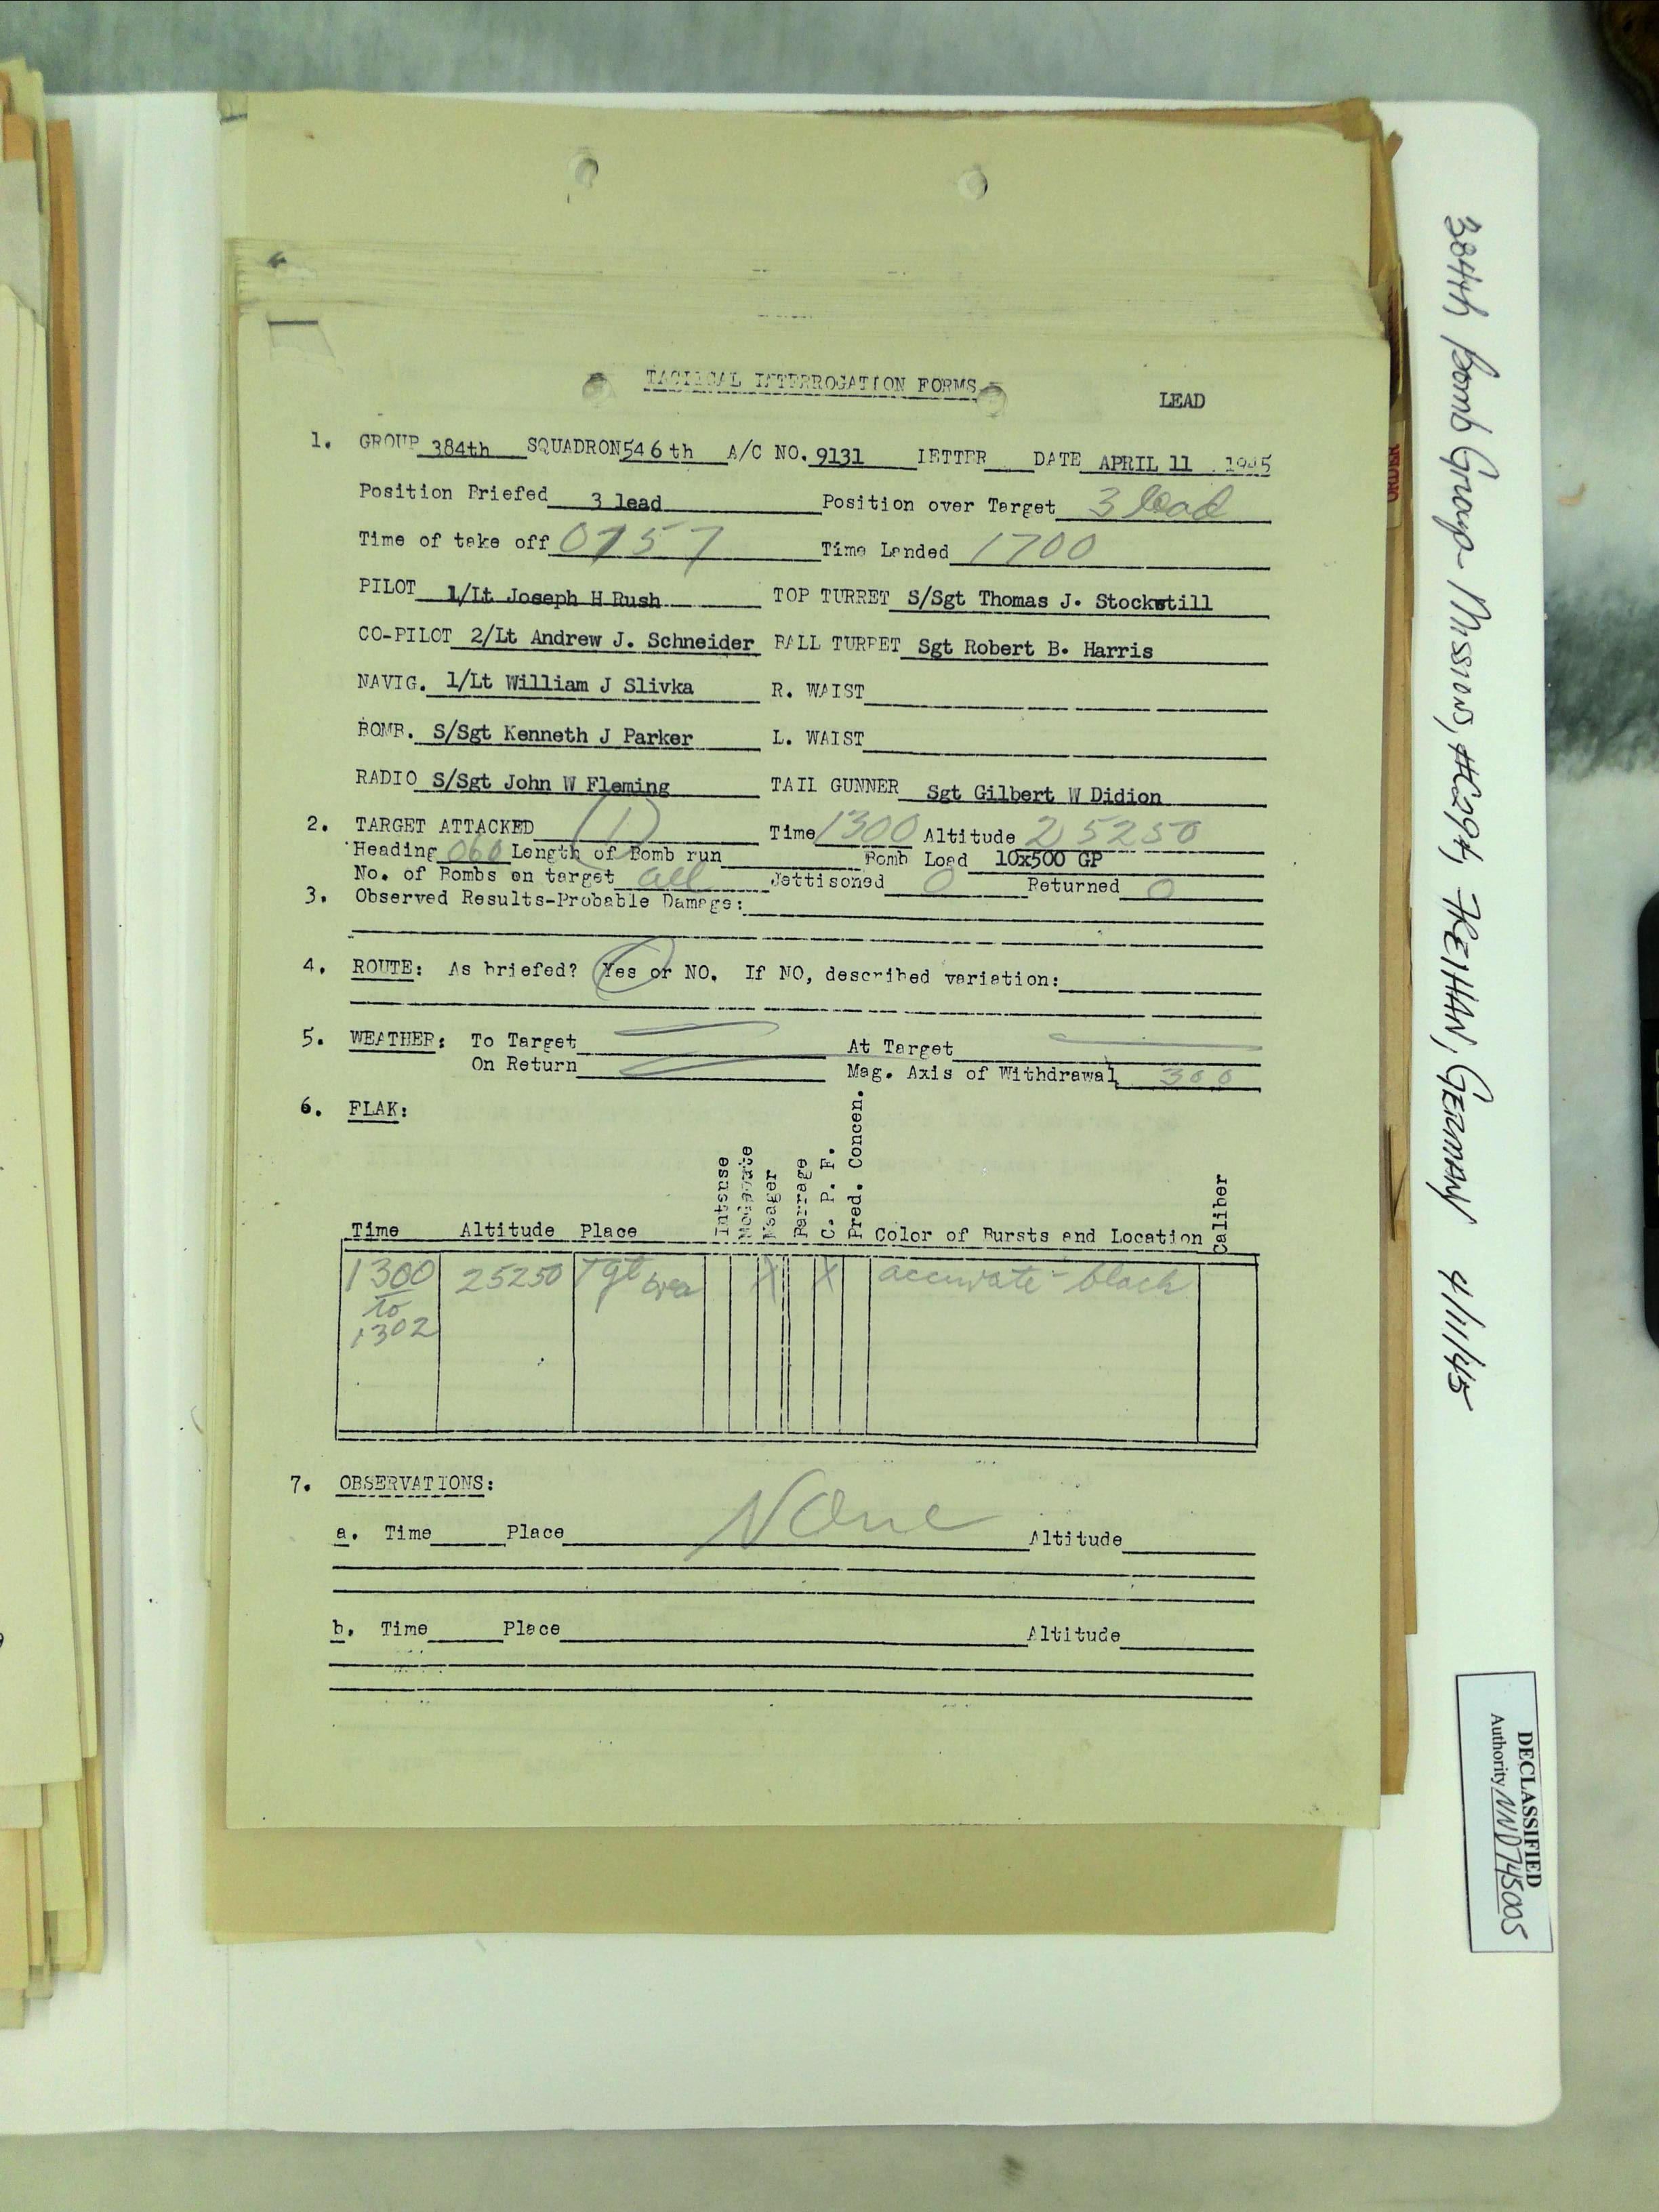 TACTICAL INTERROGATION FORMS
LEAD
1. GROUP 384th SQUADRON 546th A/C NO. 9131 LETTER DATE APRIL 11 1945
Position Briefed 3 lead Position over Target 3 lead
Time of take off 0757 Time Landed 1700
PILOT 1/Lt Joseph H Rush TOP TURRET S/Sgt Thomas J. Stockstill
CO-PILOT 2/Lt Andrew J. Schneider BALL TURRET Sgt Robert B. Harris
NAVIG. 1/Lt William J Slivka R. WAIST
BOMB. S/Sgt Kenneth J Parker L. WAIST
RADIO S/Sgt John W Fleming TAIL GUNNER Sgt Gilbert W Didion
2. TARGET ATTACKED (1) Time 1300 Altitude 25250
Heading 060 Length of Bomb run Bomb Load 10x500 GP
No. of Bombs on target all Jettisoned 0 Returned 0
3. Observed Results-Probable Damage:
4. ROUTE: As briefed? Yes or NO. If NO, described variation:
5. WEATHER: To Target At Target
On Return Mag. Axis of Withdrawal 300
6. FLAK:
Time Altitude Place Intense Moderate Meager Barrage C. P. F. Pred. Concen. Color of Bursts and Location Caliber
1300 25250 Tgt area X X accurate - black
to
1302
7. OBSERVATIONS:
None
a. Time Place Altitude
b. Time Place Altitude
384th Bomb Group - Missions, #294, GERMANY 4/11/45
ORDER
DECLASSIFIED
Authority NND745005